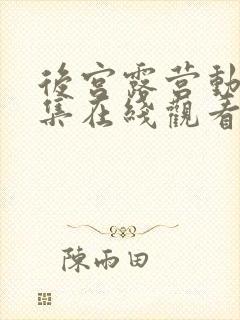 後宮露营動
集在綫觀看
陳雨田